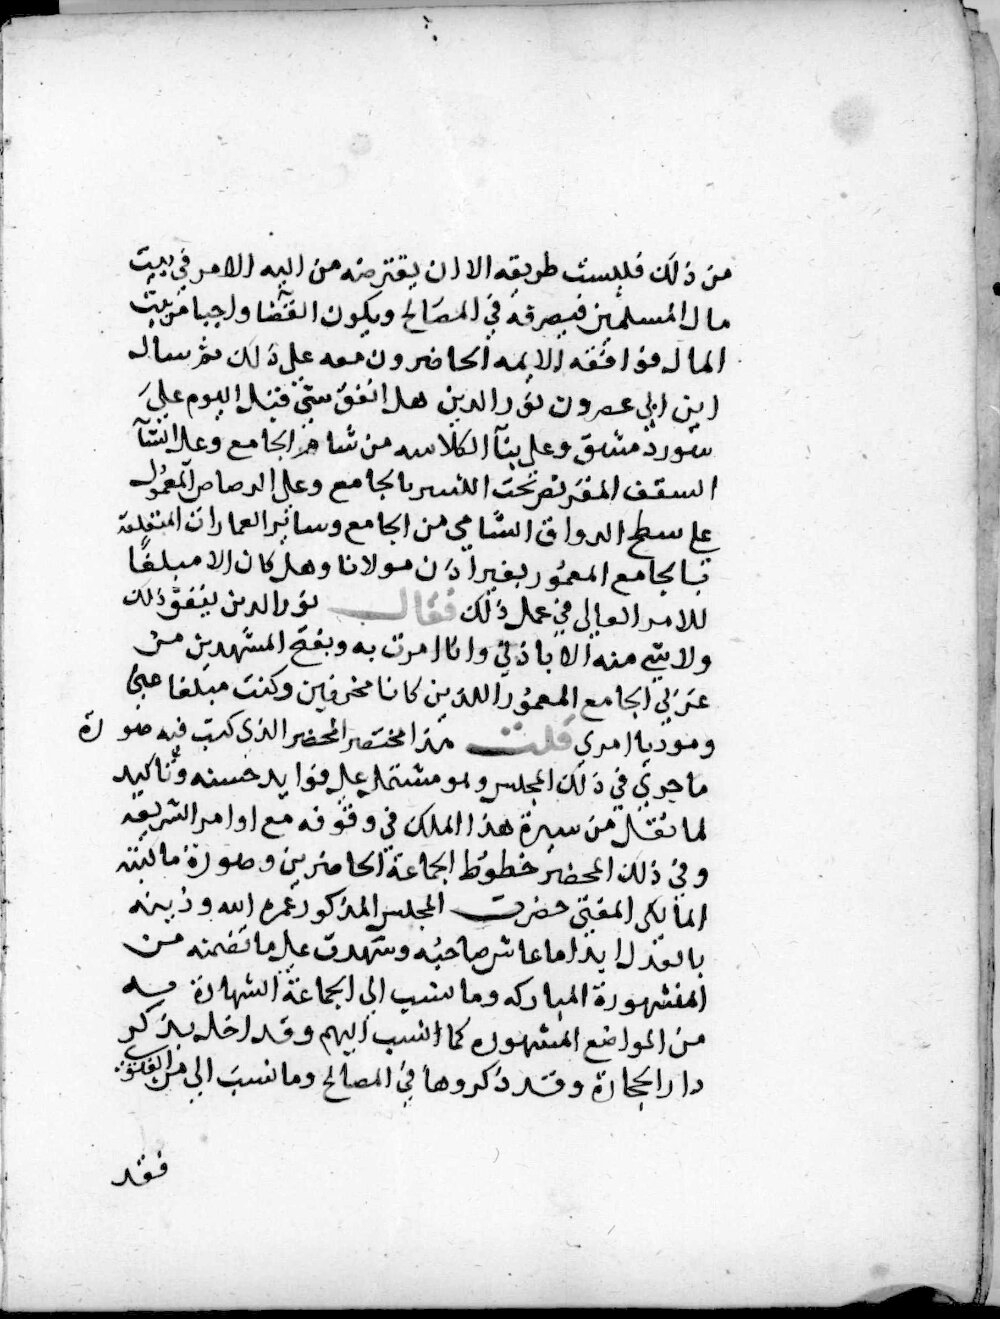 من ذلك فليست طريقه الا ان يقترضه من اليه الامر في بيت
مال المسلمين فيصرفه في المصالح ويكون القضا واجبا من بيت
المال فوافقه الايمه الحاضرون معه على ذلك ثم سال
ابن ابي عصرون نور الدين هل انفق شي قبل اليوم على
سور دمشق وعلى بنآ الكلاسه من شام الجامع وعلى انشآ
السقف المقرنص تحت النسر بالجامع وعلى الرصاص المعمول
على سطح الرواق الشامي من الجامع وساير العمارات المتعلقة
بالجامع المعمور بغير اذن مولانا وهل كان الا مبلغا
للامر العالي في عمل ذلك فقال نور الدين لم ينفق ذلك
ولا شي منه الا باذني وانا امرت به وبفتح المشهدين من
غربي الجامع المعمور اللذين كانا مخزنين وكنت مبلغا عني
وموديا امري قلت هذا مختصر المحضر الذي كتب فيه صورة
ما جرى في ذلك المجلس وهو مشتمل على فوايد حسنه وتاكيد
لما نقل من سيرة هذا الملك في وقوفه مع اوامر الشريعه
وفي ذلك المحضر خطوط الجماعة الحاضرين وصورة ما كتبه
المالكي المفتي حضرت المجلس المذكور عمره الله وزينه
بالعدل ابدا ما عاش صاحبه وشهدت على ما تضمنه من
المشهورة المباركه وما نسب الى الجماعة الشهادة به
من المواضع المشهوره كما انسب اليهم وقد اخل بذكر
دار الحجارة وقد ذكروها في المصالح وما نسب الي من الفتوى
فقد